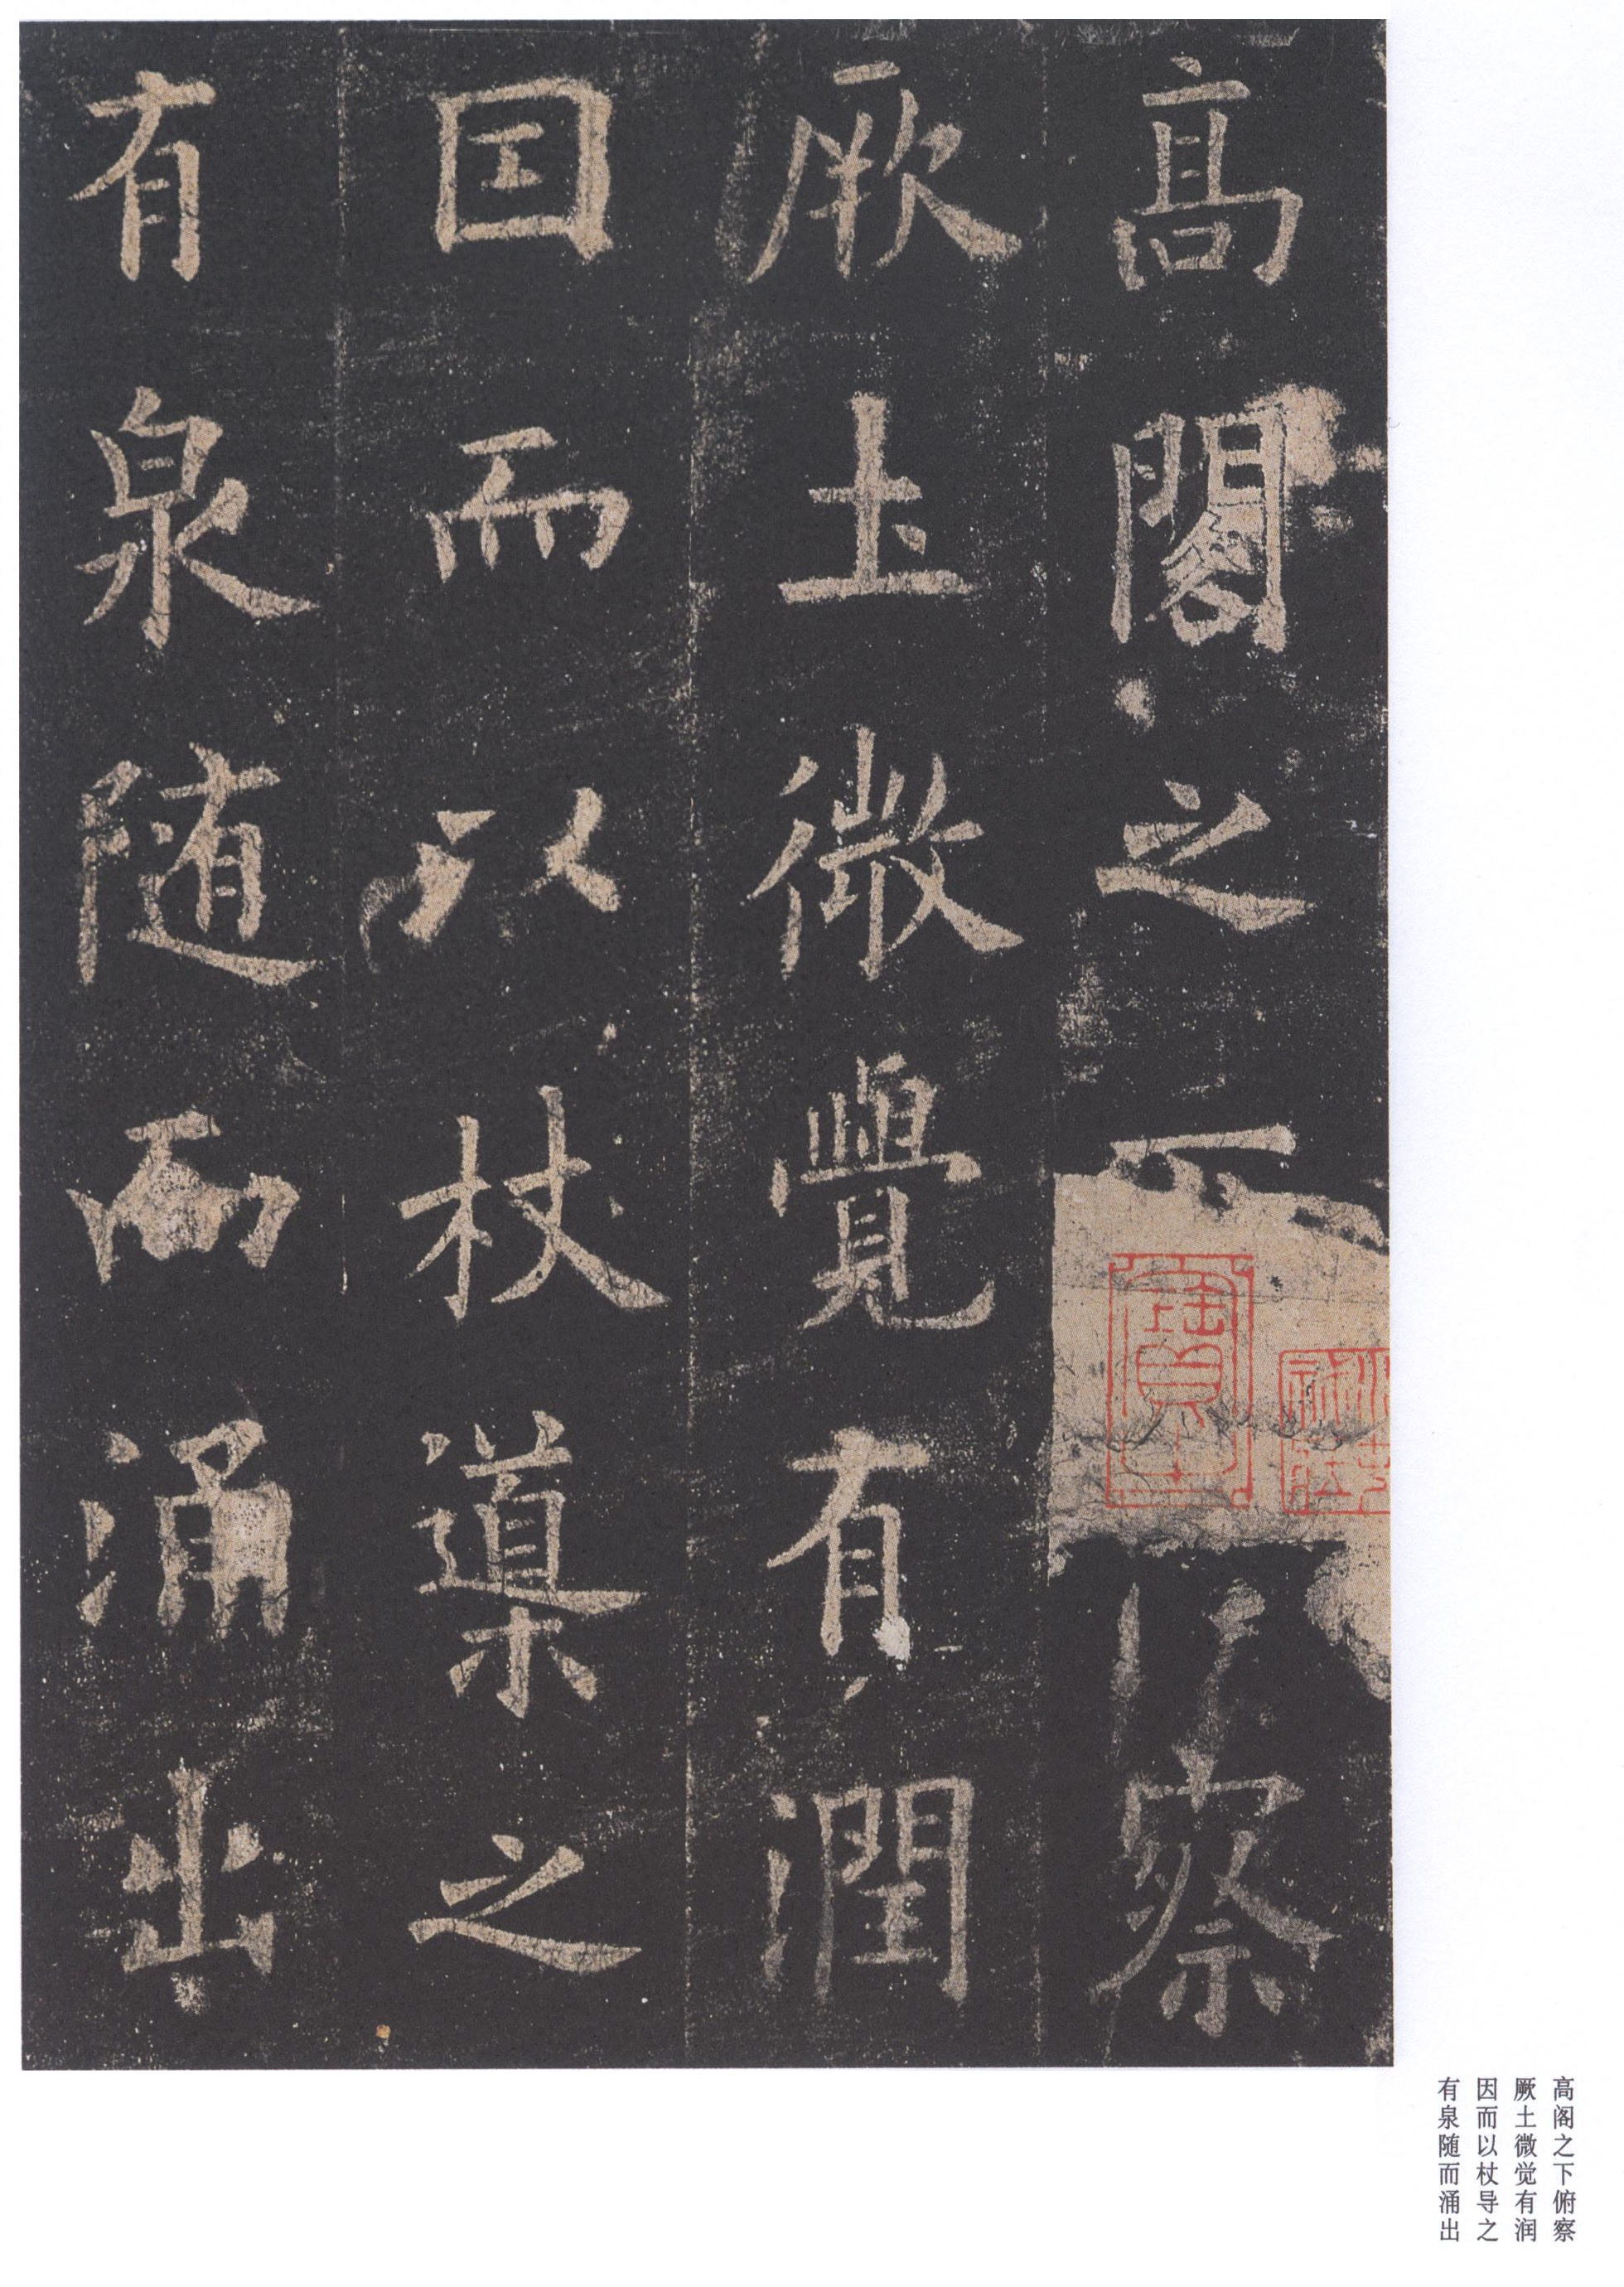 高閣之下俯察
厥土微覺有潤
因而以杖導之
有泉随而涌出
高阁之下俯察
厥土微觉有润
因而以杖导之
有泉随而涌出